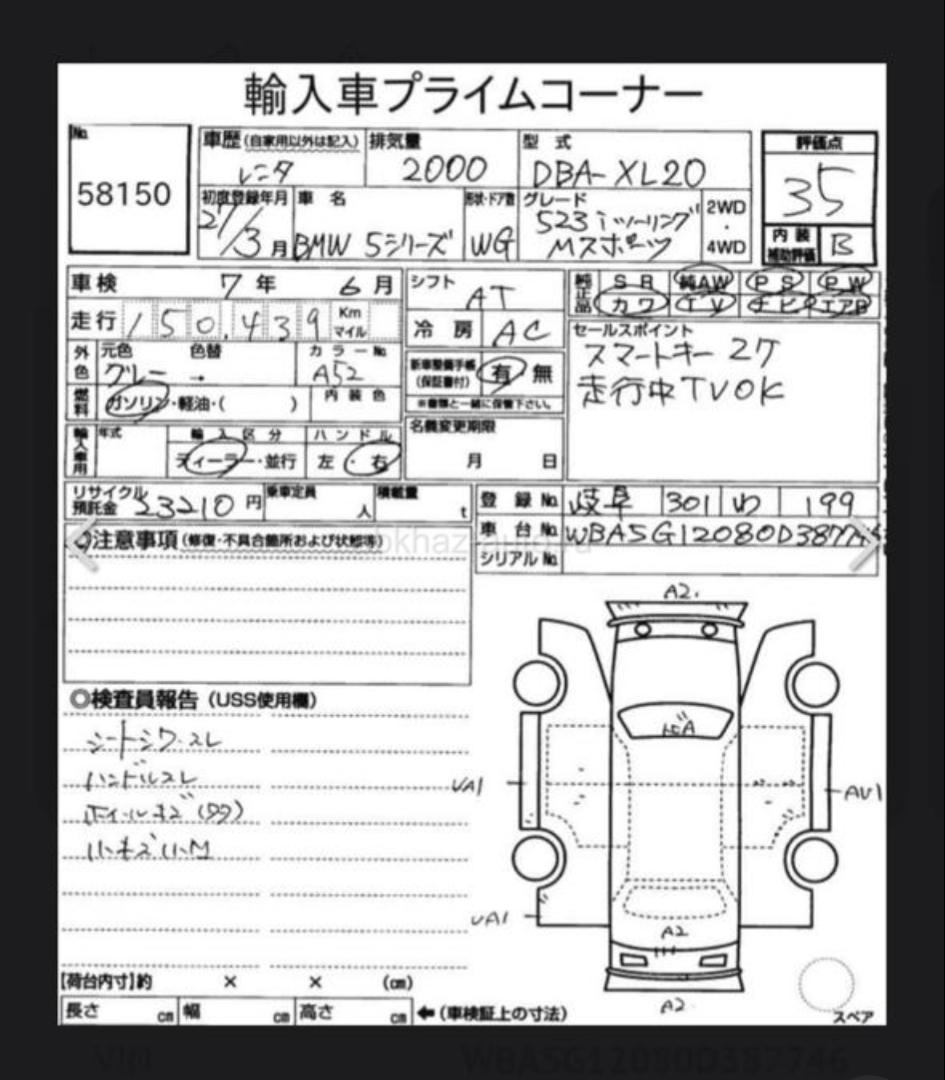 輸入車プライムコーナー
No.
58150
車歴(自家用以外は記入)
レンタ
排気量
2000
型式
DBA-XL20
評価点
35
初度登録年月
27/3月
車名
BMW 5シリーズ
形状・ドア数
WG
グレード
523iツーリング
Mスポーツ
2WD
・
4WD
内装
補助評価
B
車検 7年 6月
シフト
AT
純正品
SR 純AW PS PW
カワ TV ナビ エアB
走行 150,439 Km マイル
冷房 AC
セールスポイント
スマートキー 2ケ
走行中TVOK
外色
元色 色替
グレー →
カラーNo.
A52
新車整備手帳
(保証書付)
有 無
※書類と一緒に保管下さい。
燃料
ガソリン・軽油・( )
内装色
輸入車用
年式
輸入区分
ディーラー・並行
ハンドル
左・右
名義変更期限
月 日
リサイクル
預託金 23210円
乗車定員
人
積載量
t
登録No. 岐阜 301 わ 199
車台No. WBA5G12080D387
シリアルNo.
◎注意事項(修復・不具合箇所および状態等)
◎検査員報告(USS使用欄)
シートシワ・スレ
ハンドルスレ
ホイールキズ
小キズ小凹
A2.
UA1
AU1
UA1
A2
A2
スペア
【荷台内寸】約 × × (cm)
長さ cm 幅 cm 高さ cm ←(車検証上の寸法)
VIN WBA5G12080D387746